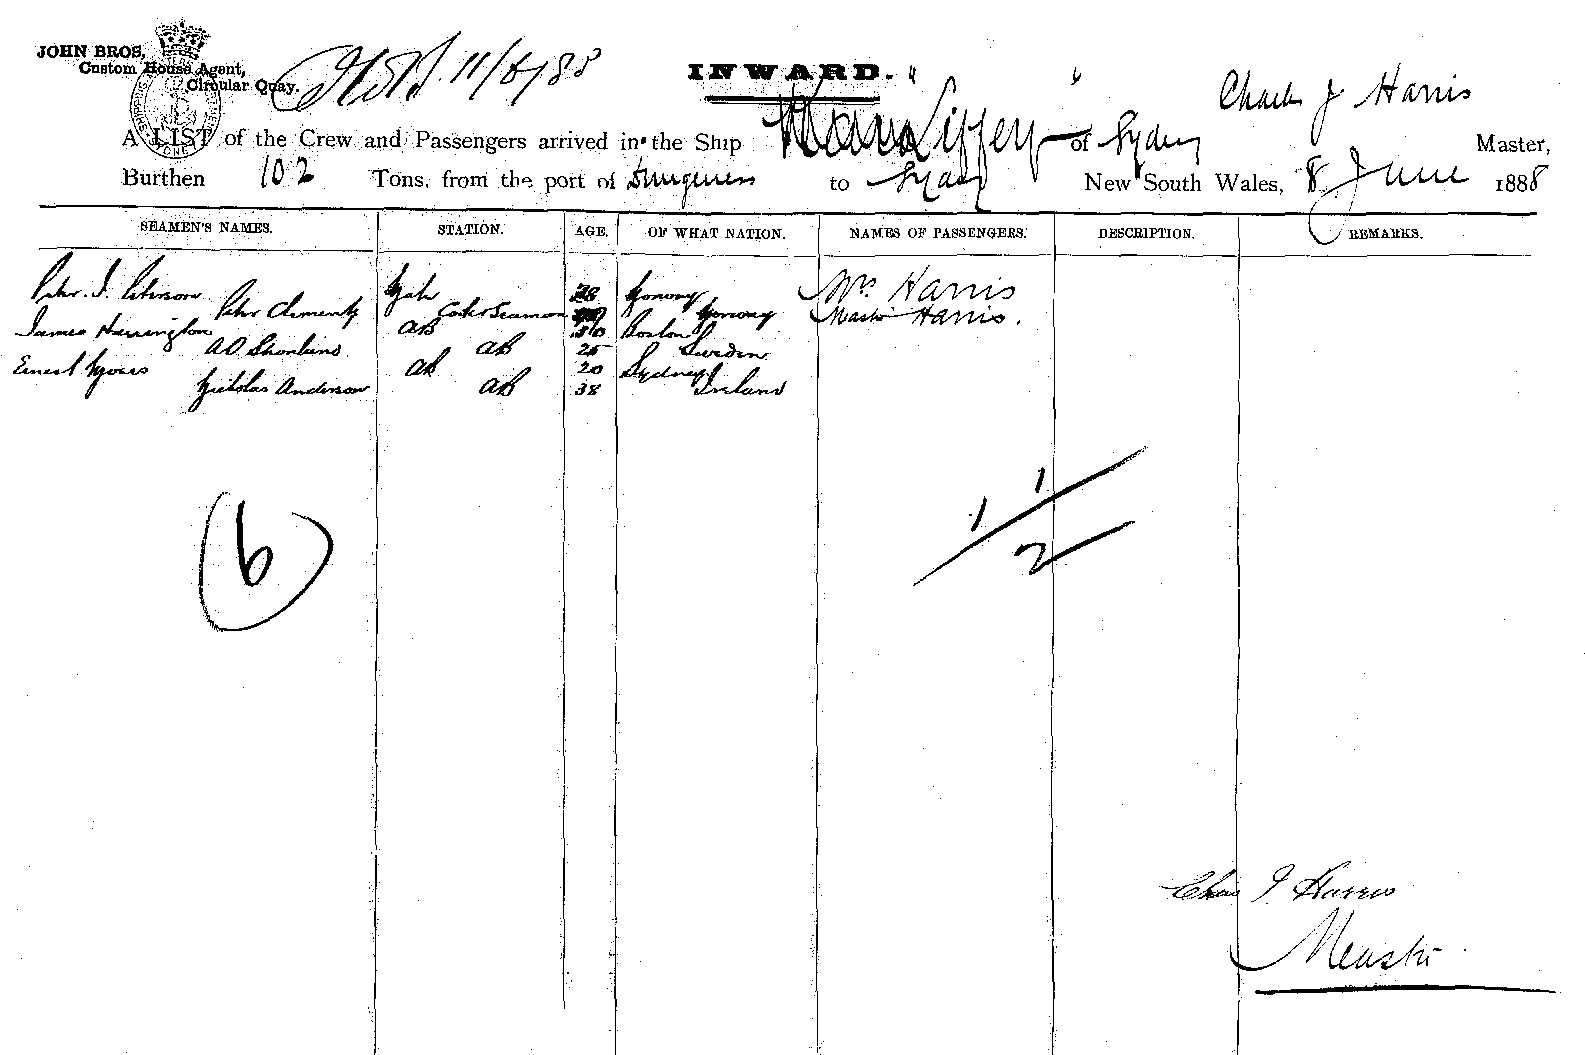 JOHN BROS,
Custom House Agent,
Circular Quay.
11/6/88
INWARD.
" "
Charles J Harris
A LIST of the Crew and Passengers arrived in the Ship Liffey of Sydney Master,
Burthen 102 Tons, from the port of Dungeness to Sydney New South Wales, 8 June 1888
SEAMEN'S NAMES. STATION. AGE. OF WHAT NATION. NAMES OF PASSENGERS. DESCRIPTION. REMARKS.
Peter J. Peterson Mate 28 Norway Mrs Harris
Peter Clementz Cook & Seaman Norway Master Harris.
James Harrington AB 50 Boston
AO AB 25 Sweden
Ernest Myers AB 20 Sydney
Nicholas Anderson AB 38 Ireland
(6)
1/1
2/
Chas J Harris
Master